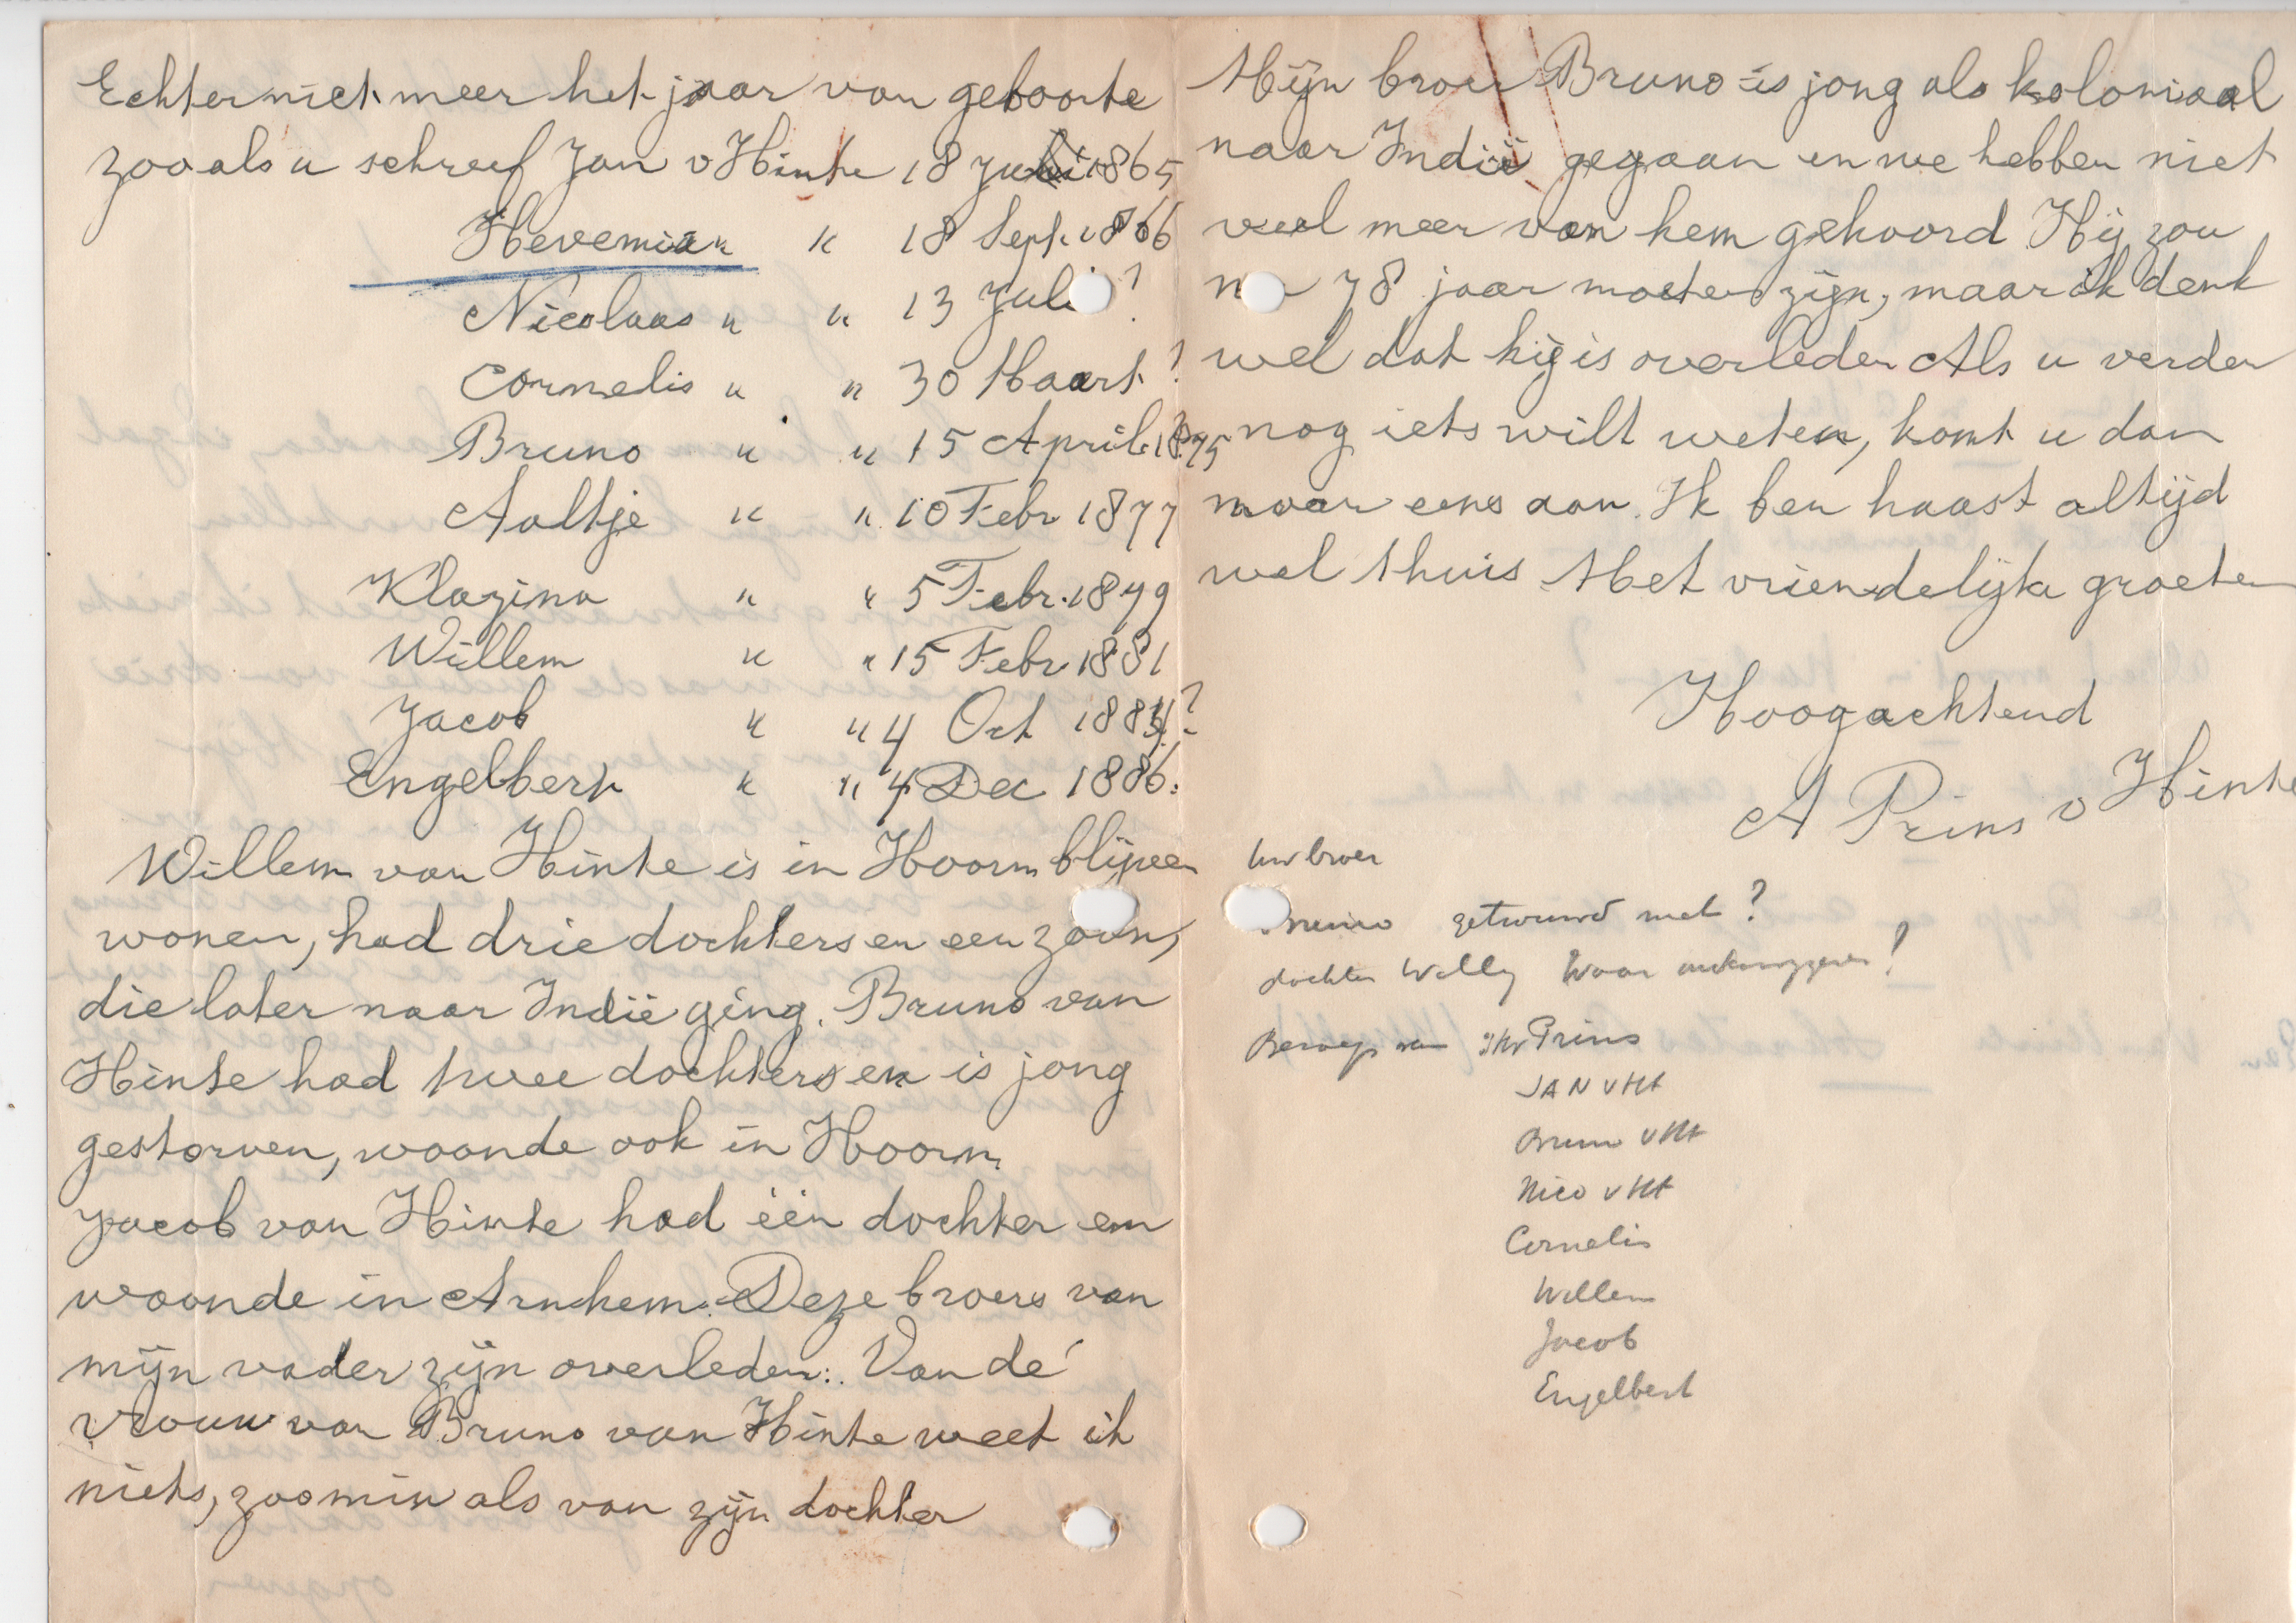 Echter niet meer het jaar van geboorte
zooals u schreef Jan v Hinte 18 Juli 1865
Hevemian " 18 Sept. 1866
Nicolaas " " 13 Juli ?
Cornelis " " 30 Maart ?
Bruno " " 15 April 1875
Aaltje " " 10 Febr 1877
Klazina " " 5 Febr. 1879
Willem " " 15 Febr 1881
Jacob " " 4 Oct 1884?
Engelbert " " 4 Dec 1886.
Willem van Hinte is in Hoorn blijven
wonen, had drie dochters en een zoon,
die later naar Indië ging. Bruno van
Hinte had twee dochters en is jong
gestorven, woonde ook in Hoorn
Jacob van Hinte had één dochter en
woonde in Arnhem. Deze broers van
mijn vader zijn overleden. Van de
vrouw van Bruno van Hinte weet ik
niets, zoomin als van zijn dochter
Mijn broer Bruno is jong als koloniaal
naar Indië gegaan en we hebben niet
veel meer van hem gehoord Hij zou
78 jaar moeten zijn, maar ik denk
wel dat hij is overleden Als u verder
nog iets wilt weten, komt u dan
maar eens aan. Ik ben haast altijd
wel thuis Met vriendelijke groeten
Hoogachtend
A Prins v Hinte
Uw broer
getrouwd met ?
dochter Willy Waar
Beroep van Prins
JAN v Ht
Bruno v Ht
Nico v Ht
Cornelis
Willem
Jacob
Engelbert